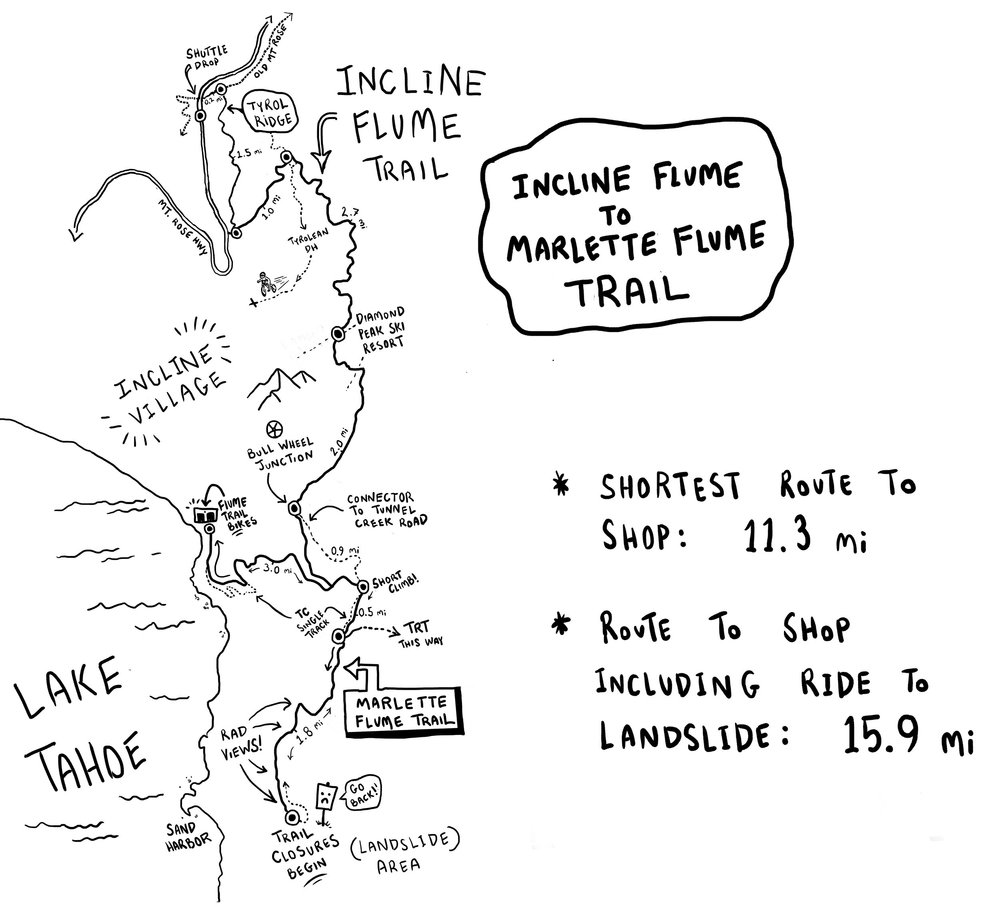 SHUTTLE
DROP
OLD MT ROSE
0.2 mi
TYROL
RIDGE
INCLINE
FLUME
TRAIL
1.5 mi
1.0 mi
MT. ROSE HWY
TYROLEAN
DH
2.7
INCLINE FLUME
TO
MARLETTE FLUME
TRAIL
DIAMOND
PEAK SKI
RESORT
INCLINE
VILLAGE
BULL WHEEL
JUNCTION
2.0 mi
FLUME
TRAIL
BIKES
CONNECTOR
TO TUNNEL
CREEK ROAD
0.9 mi
3.0 mi
SHORT
CLIMB!
TC
SINGLE
TRACK
0.5 mi
TRT
THIS WAY
MARLETTE
FLUME TRAIL
RAD
VIEWS!
1.8 mi
GO
BACK!!
TRAIL
CLOSURES
BEGIN
(LANDSLIDE)
AREA
LAKE
TAHOE
SAND
HARBOR
* SHORTEST ROUTE TO
SHOP: 11.3 mi
* ROUTE TO SHOP
INCLUDING RIDE TO
LANDSLIDE: 15.9 mi